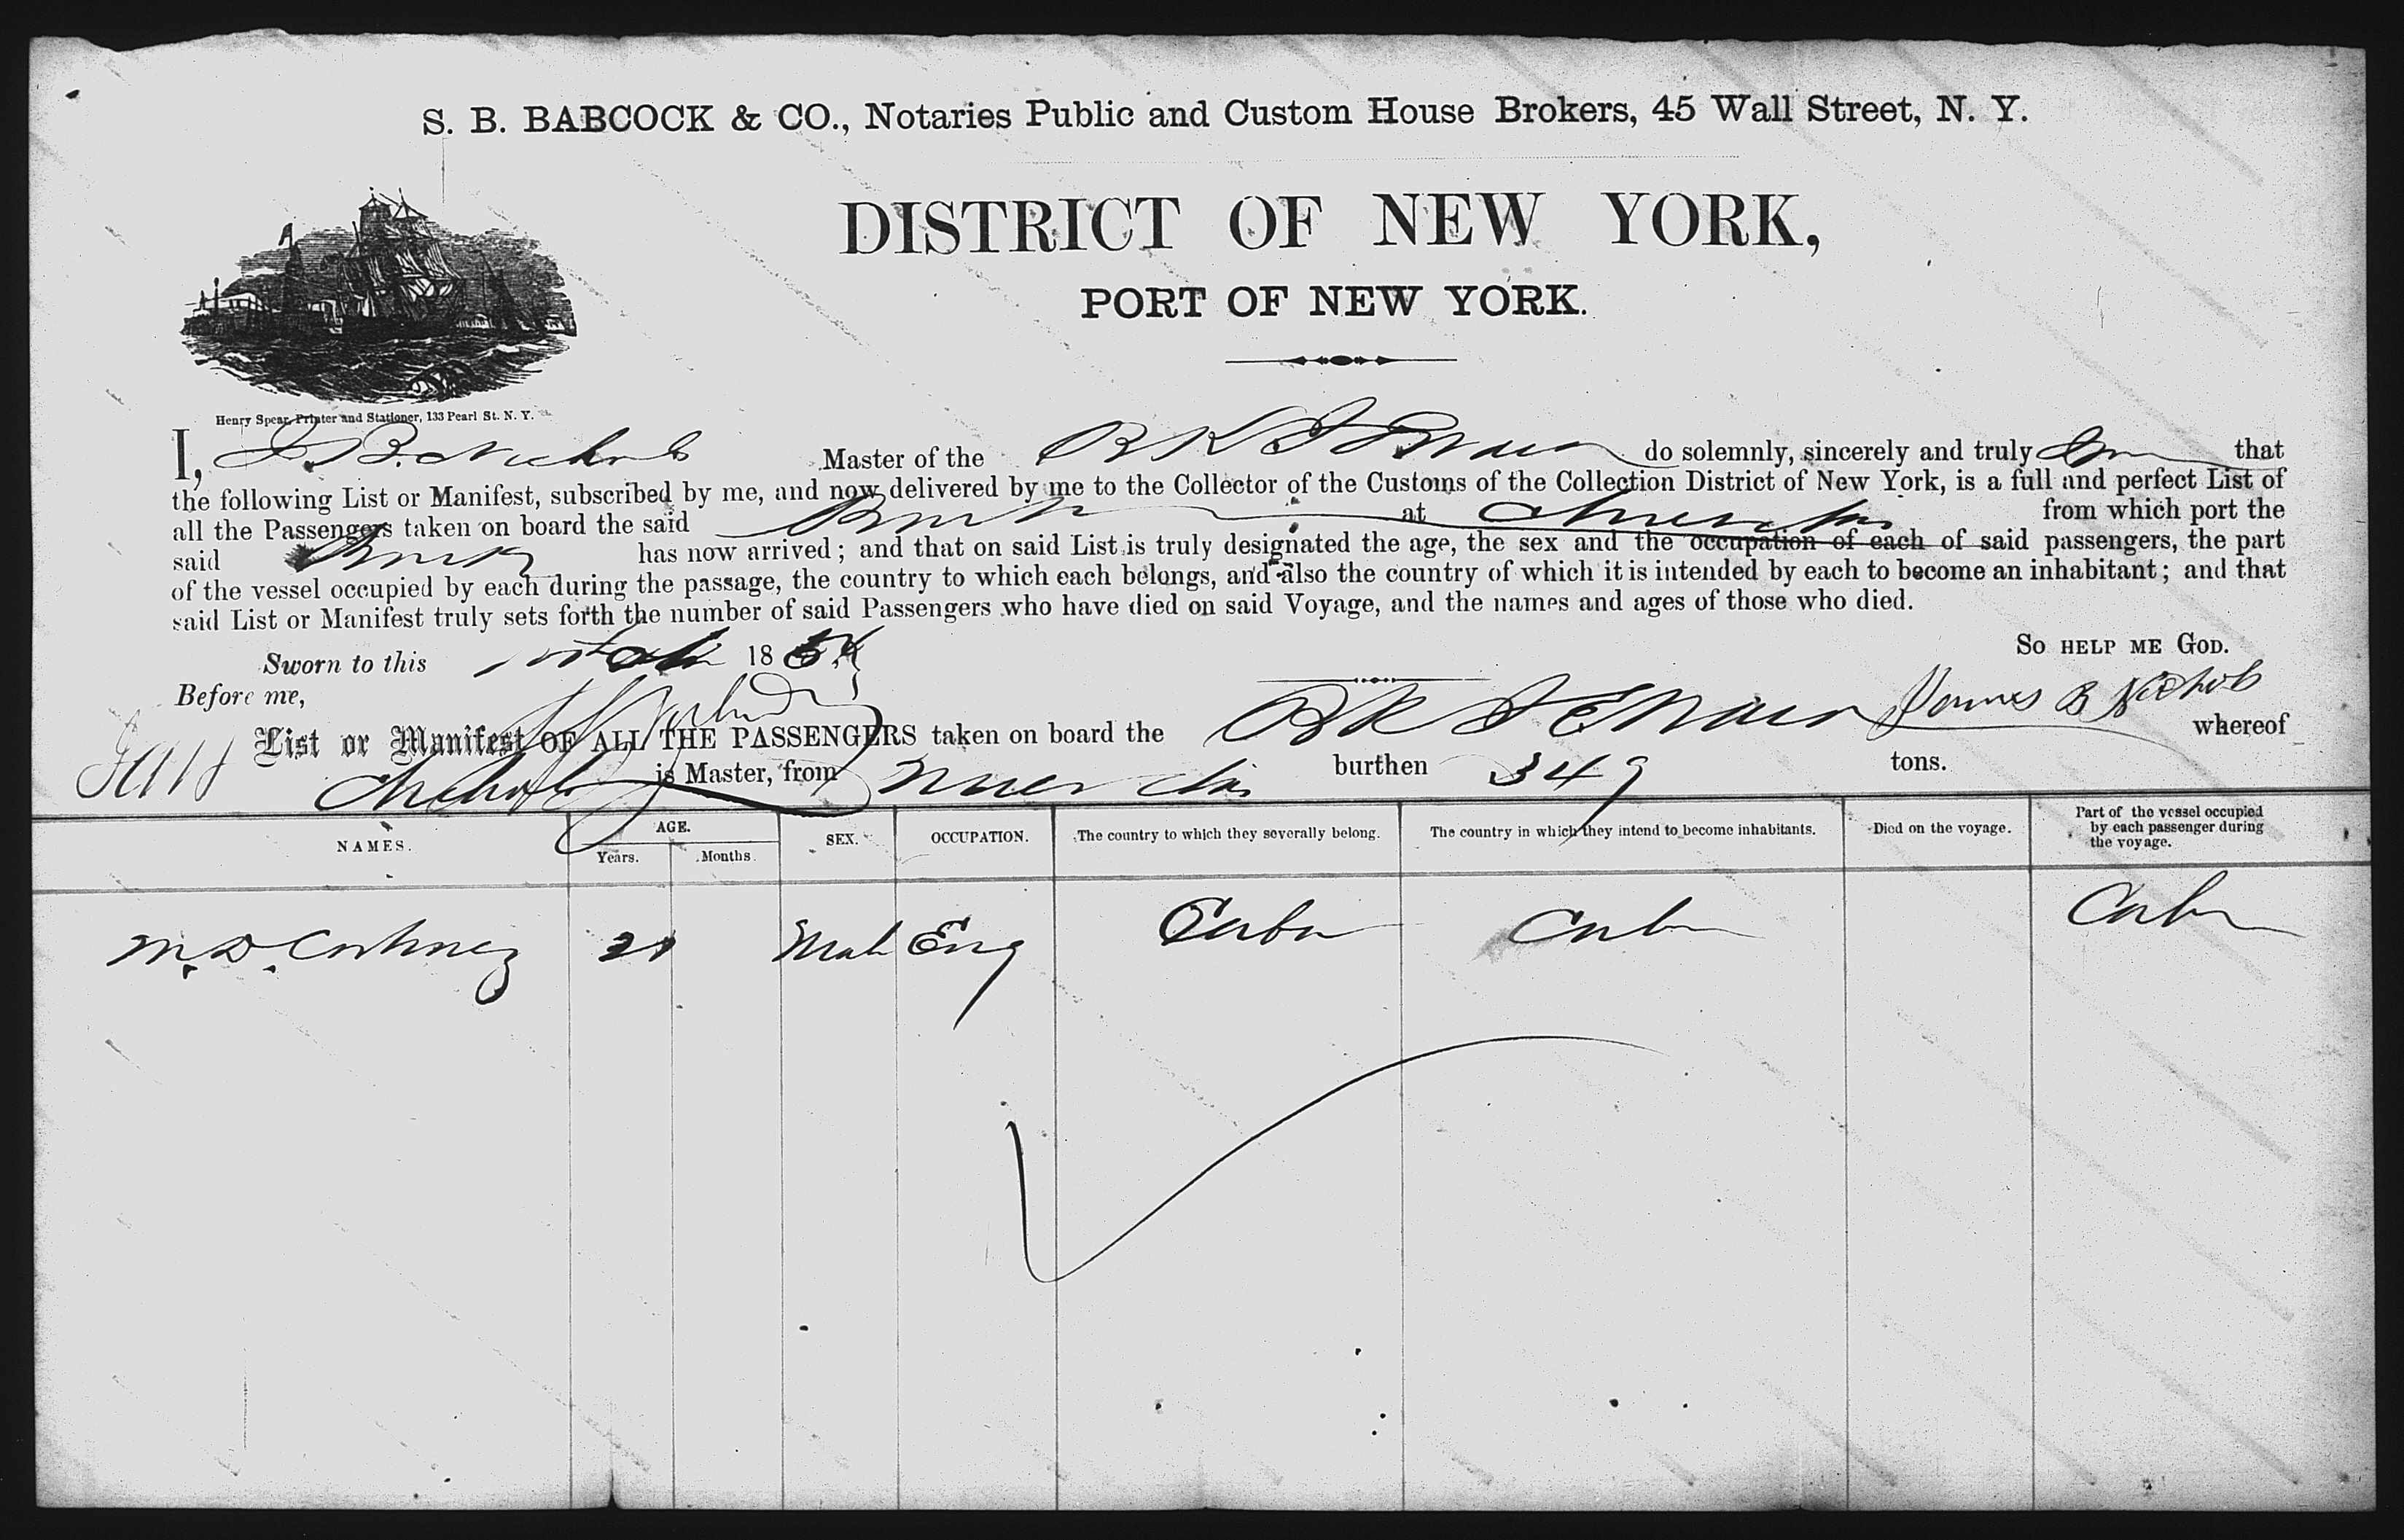 S. B. BABCOCK & CO., Notaries Public and Custom House Brokers, 45 Wall Street, N. Y.
DISTRICT OF NEW YORK,
PORT OF NEW YORK.
Henry Spear, Printer and Stationer, 133 Pearl St. N. Y.
I, J B. Nichols Master of the do solemnly, sincerely and truly that
the following List or Manifest, subscribed by me, and now delivered by me to the Collector of the Customs of the Collection District of New York, is a full and perfect List of
all the Passengers taken on board the said at from which port the
said has now arrived; and that on said List is truly designated the age, the sex and the occupation of each of said passengers, the part
of the vessel occupied by each during the passage, the country to which each belongs, and also the country of which it is intended by each to become an inhabitant; and that
said List or Manifest truly sets forth the number of said Passengers who have died on said Voyage, and the names and ages of those who died.
So HELP ME GOD.
Sworn to this 18
Before me,
James B Nichols
List or Manifest OF ALL THE PASSENGERS taken on board the whereof
Nichols is Master, from burthen 349 tons.
NAMES. AGE. Years. Months. SEX. OCCUPATION. The country to which they severally belong. The country in which they intend to become inhabitants. Died on the voyage. Part of the vessel occupied by each passenger during the voyage.
M. D. Male Eng Cuba Cuba